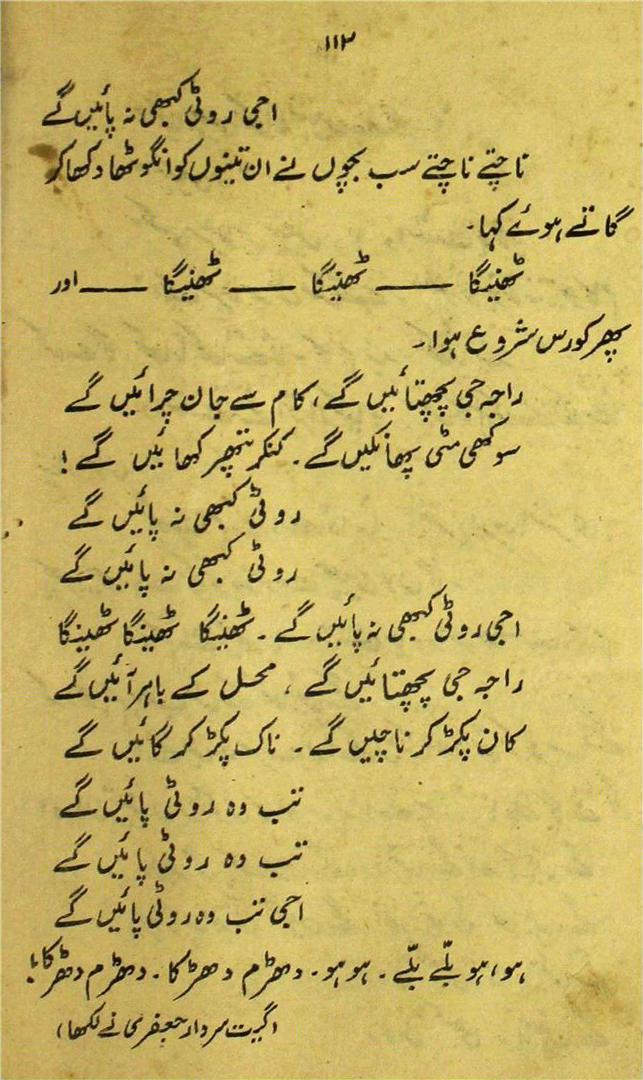 ۱۱۳
اجی روٹی کبھی نہ پائیں گے
ناچتے ناچتے سب بچوں نے ان تینوں کو انگوٹھا دکھا کر
گاتے ہوئے کہا۔
ٹھینگا —— ٹھینگا —— ٹھینگا —— اور
پھر کورس شروع ہوا۔
راجہ جی پچھتائیں گے، کام سے جان چرائیں گے
سوکھی مٹی پھانکیں گے۔ کنکر پتھر کھائیں گے!
روٹی کبھی نہ پائیں گے
روٹی کبھی نہ پائیں گے
اجی روٹی کبھی نہ پائیں گے۔ ٹھینگا ٹھینگا ٹھینگا
راجہ جی پچھتائیں گے، محل کے باہر آئیں گے
کان پکڑ کر ناچیں گے۔ ناک پکڑ کر گائیں گے
تب وہ روٹی پائیں گے
تب وہ روٹی پائیں گے
اجی تب وہ روٹی پائیں گے
ہو، ہو بلّے بلّے۔ ہو ہو۔ دھڑم دھڑکا۔ دھڑم دھڑکا!
(گیت سردار جعفری نے لکھا)